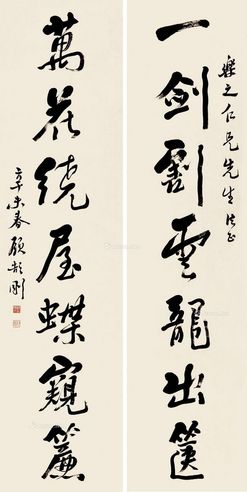 樂之仁兄先生法正
一劍劃雲龍出篋
萬花繞屋蝶窺簾
辛未春顧頡剛